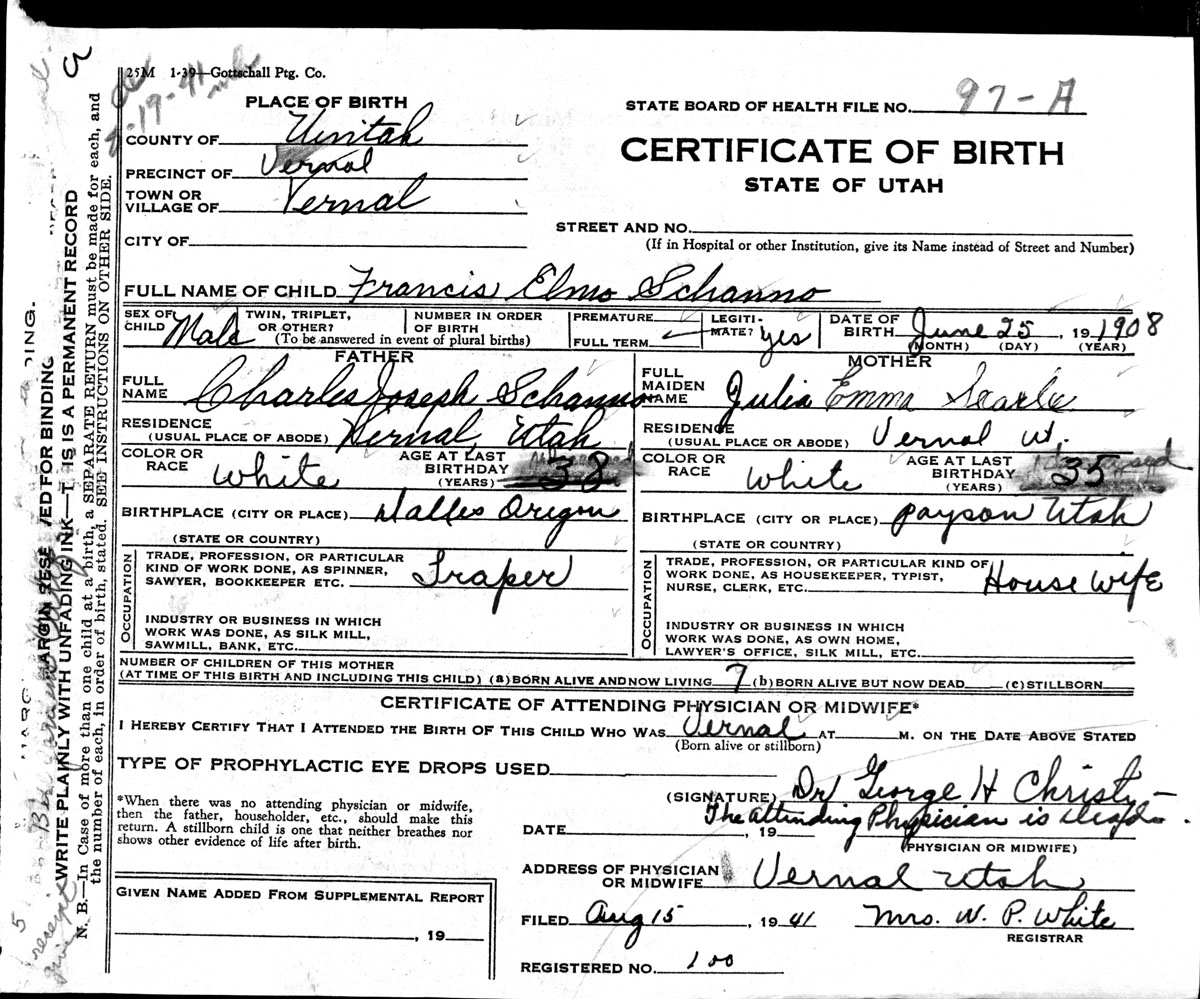 25M 1-39—Gottschall Ptg. Co.
PLACE OF BIRTH
STATE BOARD OF HEALTH FILE NO. 97-A
COUNTY OF Uintah
CERTIFICATE OF BIRTH
PRECINCT OF Vernal
STATE OF UTAH
TOWN OR
VILLAGE OF Vernal
STREET AND NO.
CITY OF
(If in Hospital or other Institution, give its Name instead of Street and Number)
FULL NAME OF CHILD Francis Elmo Schanno
SEX OF CHILD Male TWIN, TRIPLET, OR OTHER? NUMBER IN ORDER OF BIRTH (To be answered in event of plural births) PREMATURE FULL TERM LEGITI-MATE? yes DATE OF BIRTH June 25 19 1908
(MONTH) (DAY) (YEAR)
FATHER
FULL NAME Charles Joseph Schanno
RESIDENCE (USUAL PLACE OF ABODE) Vernal, Utah
COLOR OR RACE White AGE AT LAST BIRTHDAY (YEARS) 38
BIRTHPLACE (CITY OR PLACE) Dalles Oregon
(STATE OR COUNTRY)
OCCUPATION
TRADE, PROFESSION, OR PARTICULAR
KIND OF WORK DONE, AS SPINNER,
SAWYER, BOOKKEEPER ETC. Traper
INDUSTRY OR BUSINESS IN WHICH
WORK WAS DONE, AS SILK MILL,
SAWMILL, BANK, ETC.
MOTHER
FULL MAIDEN NAME Julia Emma Searle
RESIDENCE (USUAL PLACE OR ABODE) Vernal Ut.
COLOR OR RACE White AGE AT LAST BIRTHDAY (YEARS) 35
BIRTHPLACE (CITY OR PLACE) Payson Utah
(STATE OR COUNTRY)
OCCUPATION
TRADE, PROFESSION, OR PARTICULAR KIND OF
WORK DONE, AS HOUSEKEEPER, TYPIST,
NURSE, CLERK, ETC. House wife
INDUSTRY OR BUSINESS IN WHICH
WORK WAS DONE, AS OWN HOME,
LAWYER'S OFFICE, SILK MILL, ETC.
NUMBER OF CHILDREN OF THIS MOTHER
(AT TIME OF THIS BIRTH AND INCLUDING THIS CHILD) (a) BORN ALIVE AND NOW LIVING 7 (b) BORN ALIVE BUT NOW DEAD (c) STILLBORN
CERTIFICATE OF ATTENDING PHYSICIAN OR MIDWIFE*
I HEREBY CERTIFY THAT I ATTENDED THE BIRTH OF THIS CHILD WHO WAS Vernal AT M. ON THE DATE ABOVE STATED
(Born alive or stillborn)
TYPE OF PROPHYLACTIC EYE DROPS USED
*When there was no attending physician or midwife,
then the father, householder, etc., should make this
return. A stillborn child is one that neither breathes nor
shows other evidence of life after birth.
(SIGNATURE) Dr George H Christy
The Attending Physician is dead.
DATE , 19
(PHYSICIAN OR MIDWIFE)
ADDRESS OF PHYSICIAN OR MIDWIFE Vernal Utah
GIVEN NAME ADDED FROM SUPPLEMENTAL REPORT
, 19
FILED Aug 15, 19 41 Mrs. W. P. White
REGISTRAR
REGISTERED NO. 100
WRITE PLAINLY WITH UNFADING INK—T IS IS A PERMANENT RECORD
N. B.—In Case of more than one child at a birth, a SEPARATE RETURN must be made for each, and
the number of each, in order of birth, stated. SEE INSTRUCTIONS ON OTHER SIDE.